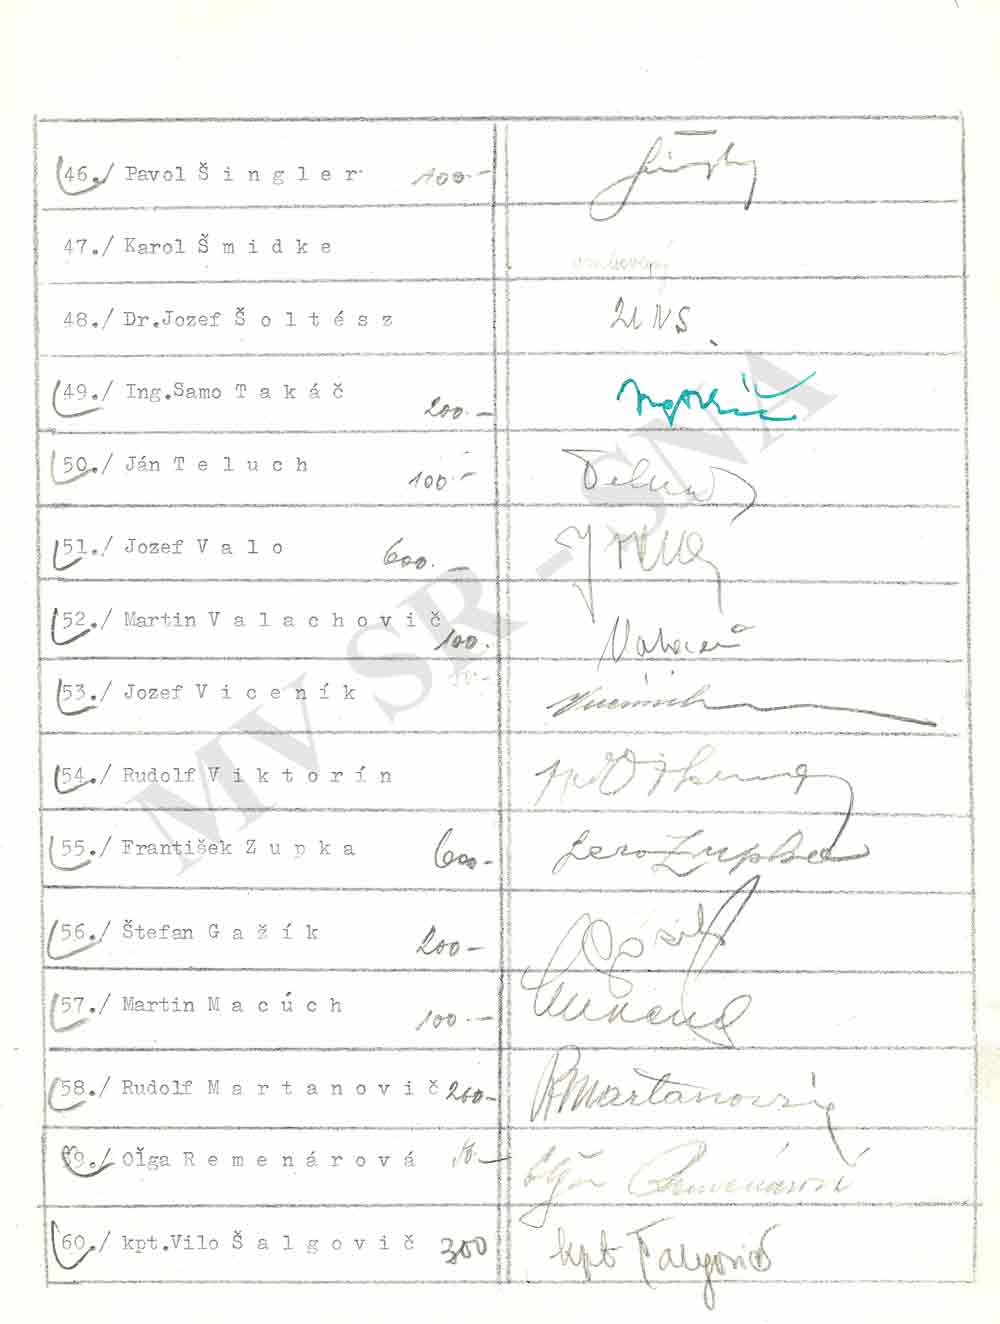 46./ Pavol Š i n g l e r 100.-
47./ Karol Š m i d k e
48./ Dr.Jozef Š o l t é s z ZUNS
49./ Ing.Samo T a k á č 200.-
50./ Ján T e l u c h 100.- Teluch
51./ Jozef V a l o 600.- J Valo
52./ Martin V a l a c h o v i č 100.
53./ Jozef V i c e n í k Viceník
54./ Rudolf V i k t o r í n
55./ František Z u p k a 600- Fero Zupka
56./ Štefan G a ž í k 200-
57./ Martin M a c ú c h 100.-
58./ Rudolf M a r t a n o v i č 200- R Martanovič
59./ Oľga R e m e n á r o v á 50.- Oľga Remenárová
60./ kpt.Vilo Š a l g o v i č 300 kpt Šalgovič
MV SR - SNA